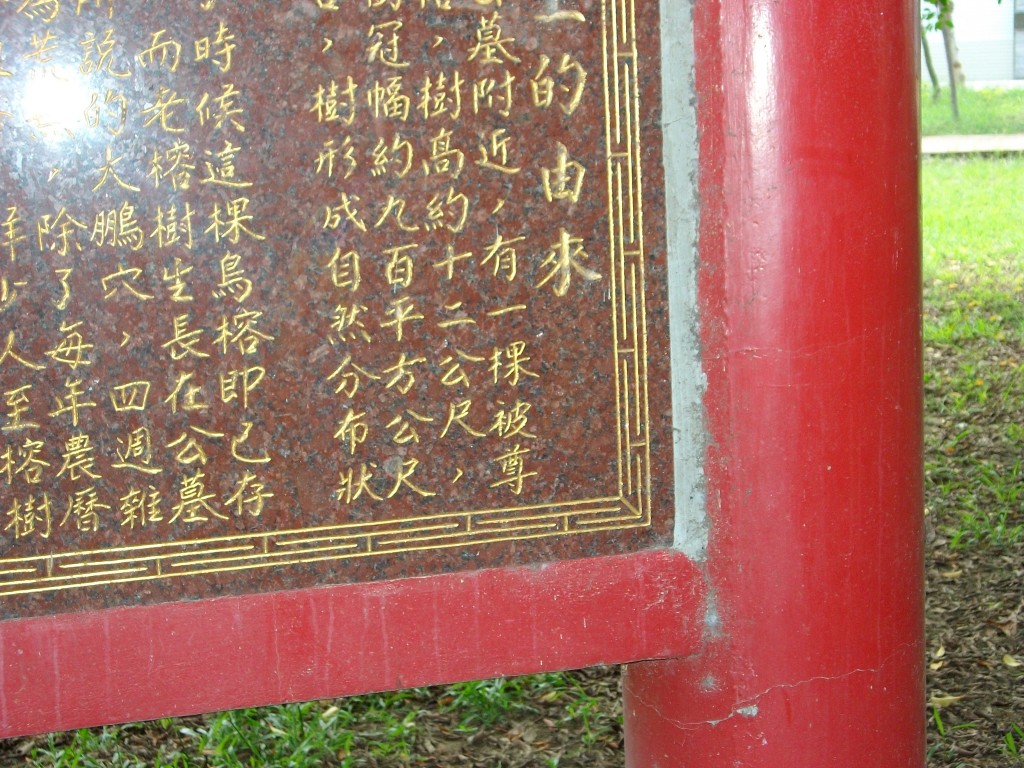 的由來
墓附近,有一棵被尊
,樹高約十二公尺,
冠幅約九百平方公尺
,樹形成自然分布狀
時候這棵鳥榕即已存
而老榕樹生長在公墓
說的大鵬穴,四週雜
,除了每年農曆
少人至榕樹